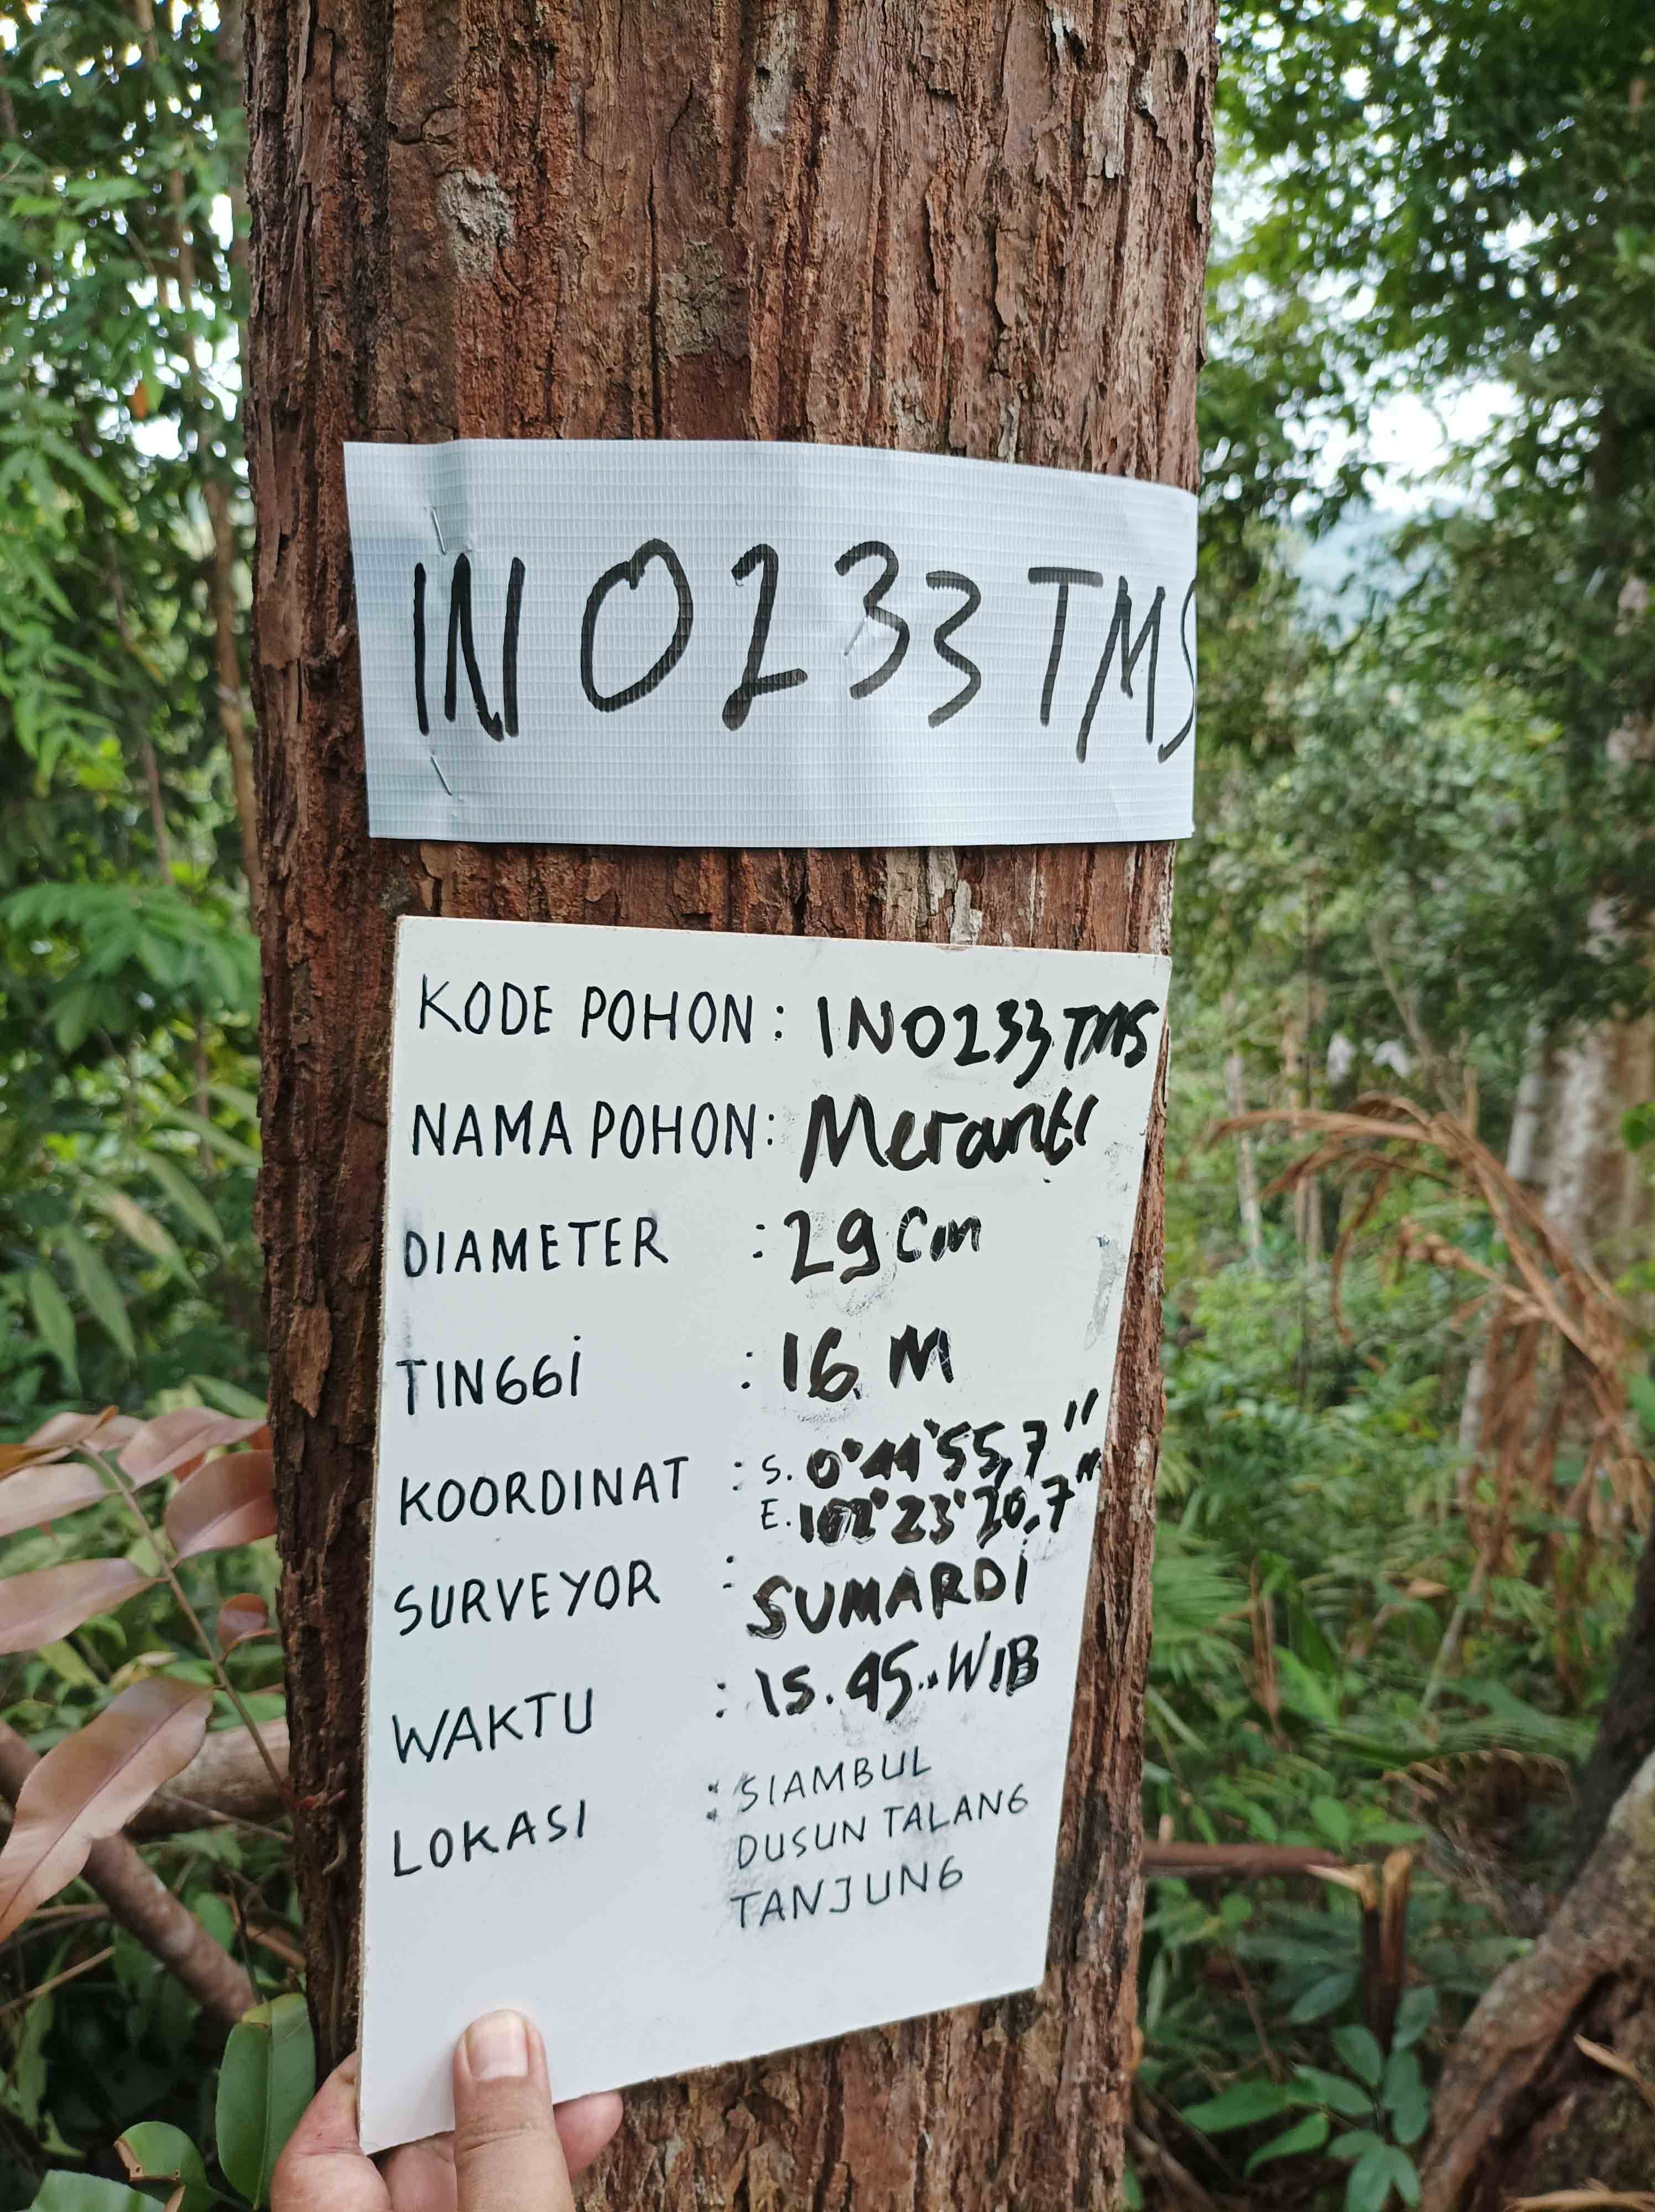 IN 0233 TMS
KODE POHON : IN0233 TMS
NAMA POHON : Meranti
DIAMETER : 29 Cm
TINGGi : 16 M
KOORDINAT : S. 0°44'55,7"
E. 102°23'20,7"
SURVEYOR : SUMARDi
WAKTU : 15.45. WIB
LOKASI : SIAMBUL
DUSUN TALANG
TANJUNG